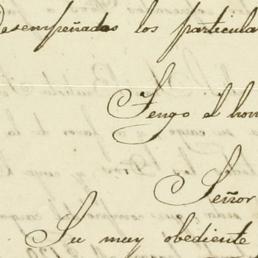 desempeñados los particula
Tengo el hon
Señor
Su muy obediente